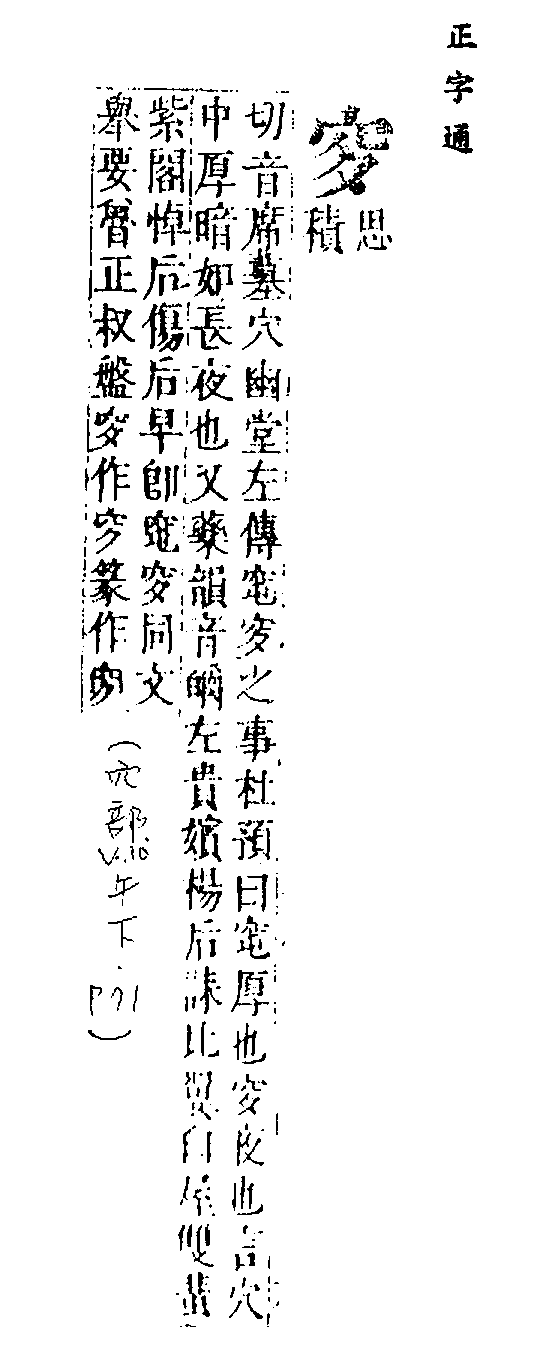 正字通
穸
思
積
切音席墓穴幽堂左傳窀穸之事杜預曰窀厚也穸夜也言穴
中厚暗如長夜也又藥韻音皭左貴嬪楊后誄比翼白屋雙
紫閣悼后傷后早卽窀穸同文
舉要
正叔盤穸作穸篆作
(穴部
V.10
午下.
P71)